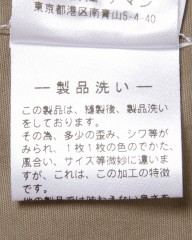 マン
東京都港区南青山5-4-40
― 製品洗い ―
この製品は、縫製後、製品洗い
をしております。
その為、多少の歪み、シワ等が
みられ、1枚1枚の色のでかた、
風合い、サイズ等微妙に違いま
すが、これは、この加工の特徴
です。